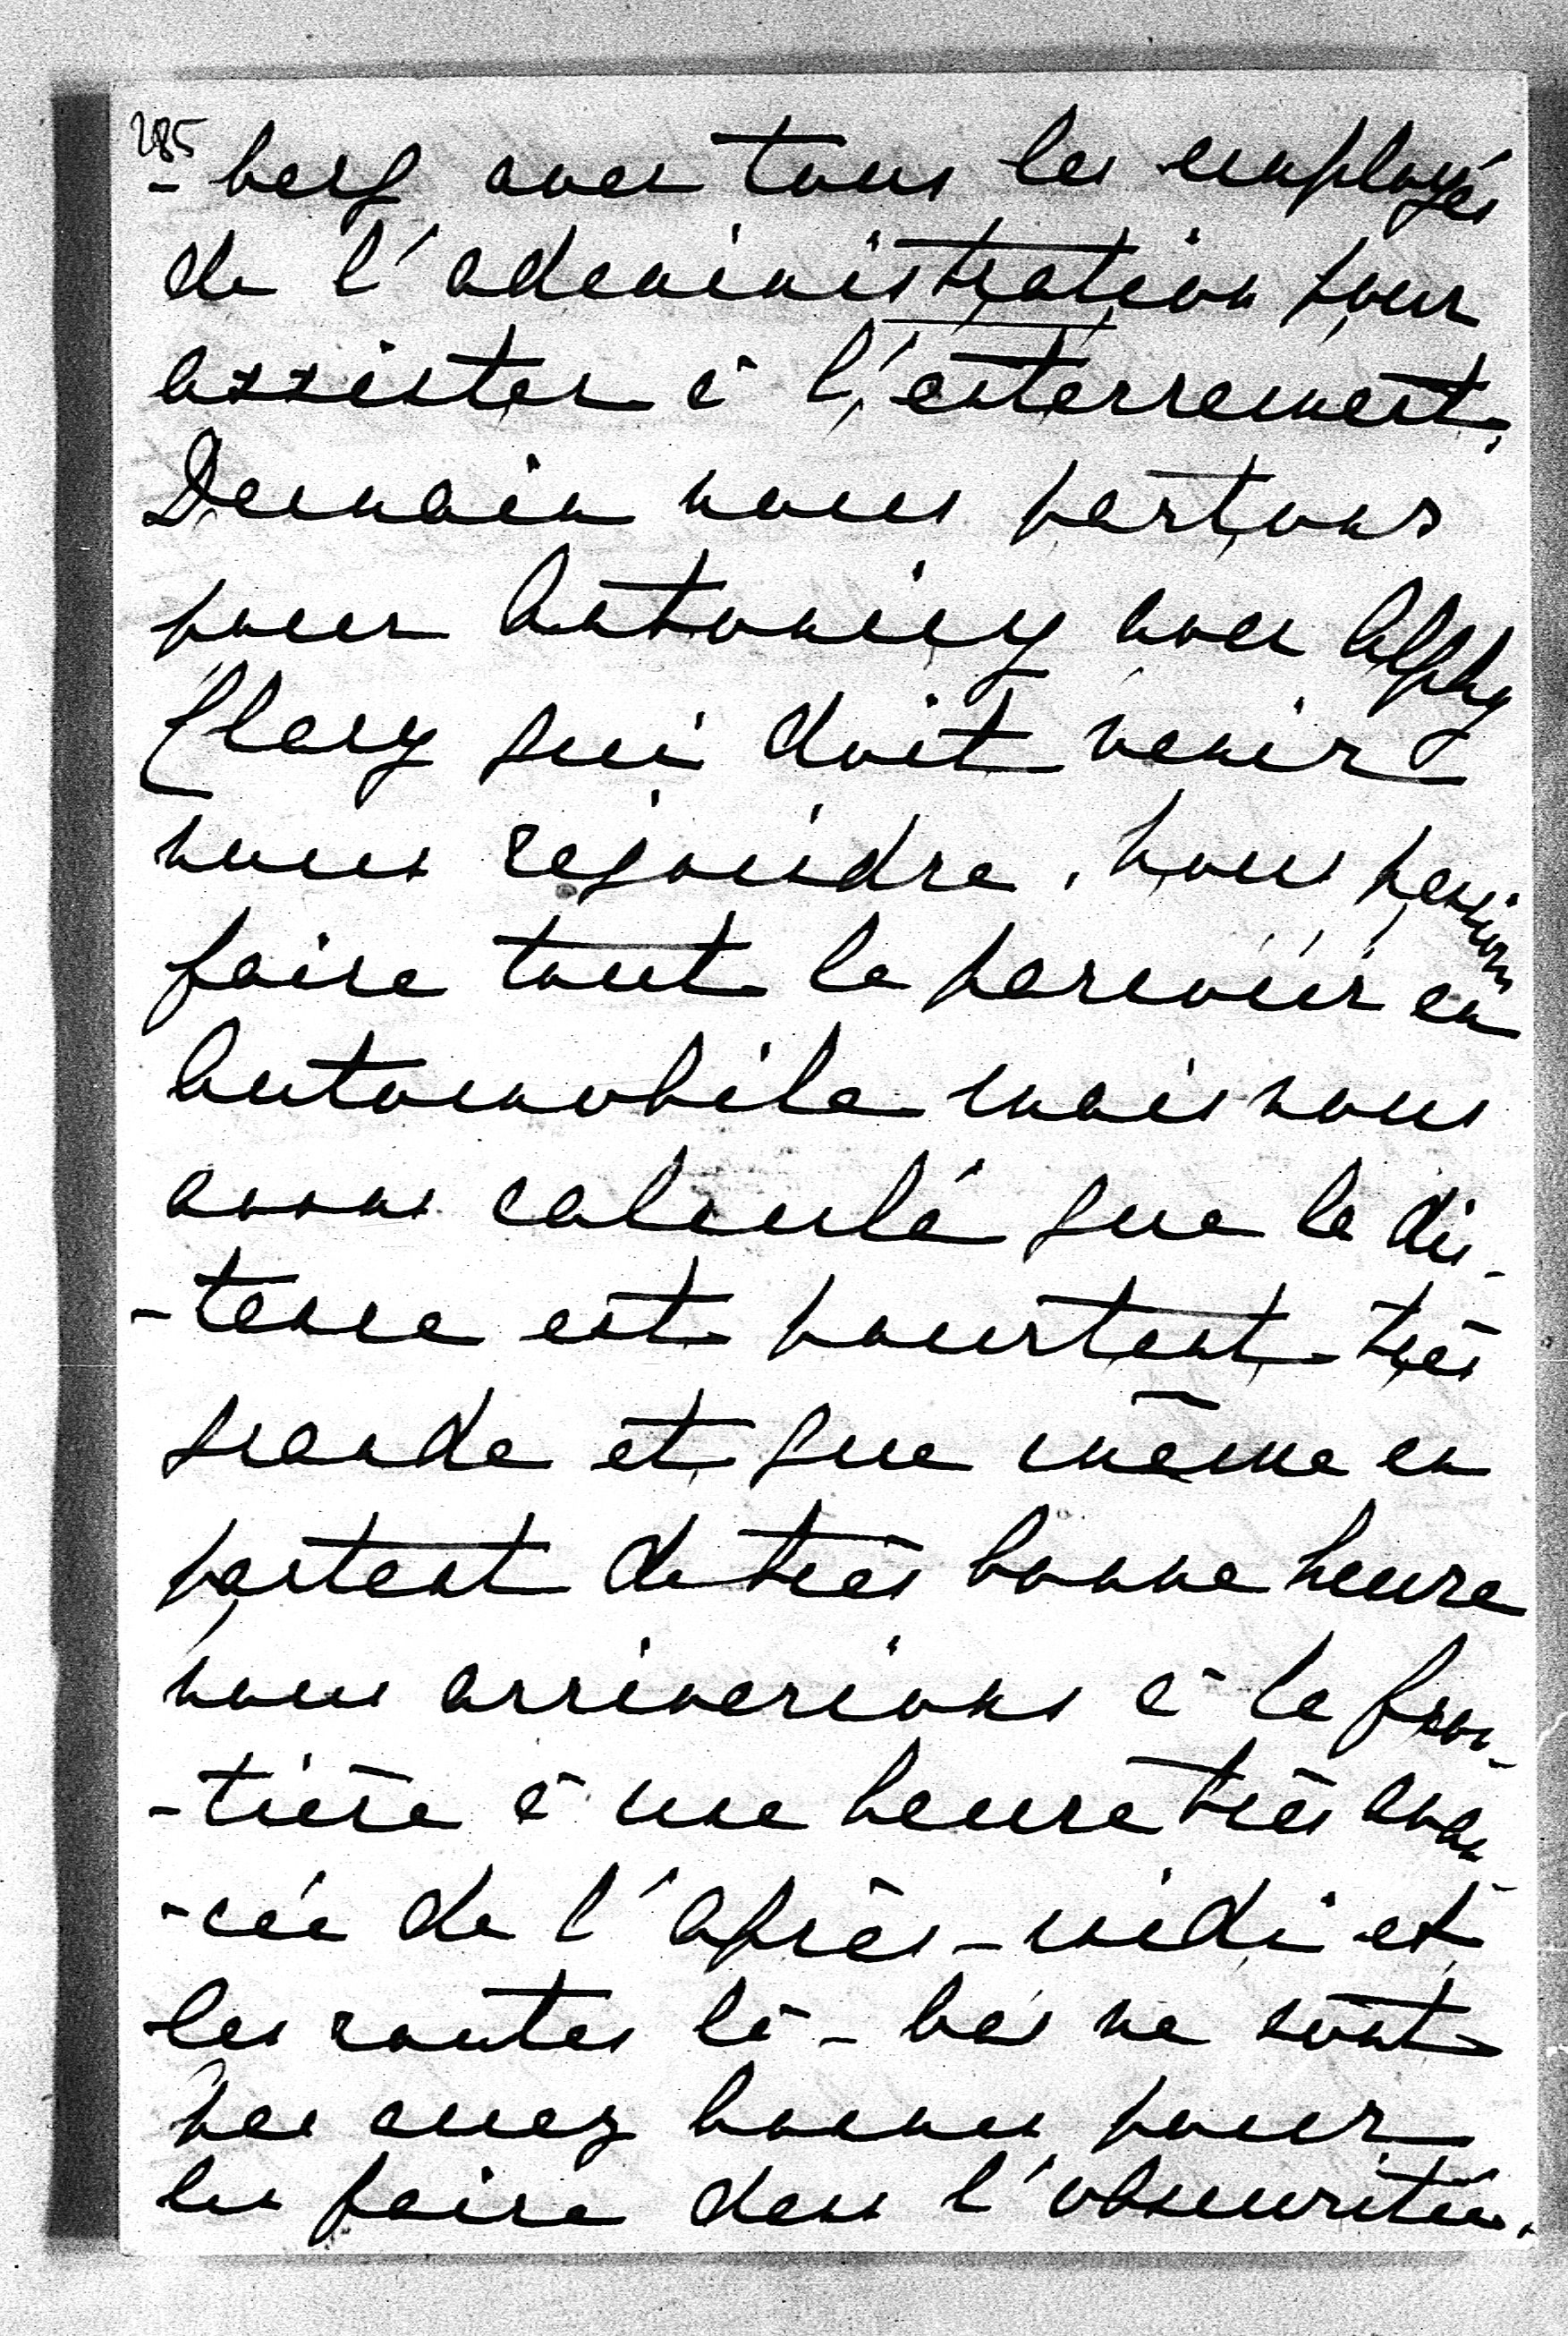 285
-berg avec tous les employés
de l'administration pour
assister à l'enterrement.
Demain nous partons
pour Antoniny avec Alphy
Clary qui doit venir
nous rejoindre. Nous pensions
faire tout le parcour en
automobile mais nous
avons calculé que la dis-
-tance est pourtant très
grande et que même en
partant de très bonne heure
nous arriverions à la fron-
-tière à une heure très avan-
-cée de l'après-midi et
les routes là-bas ne sont
pas assez bonnes pour
les faire dans l'obscuritée.